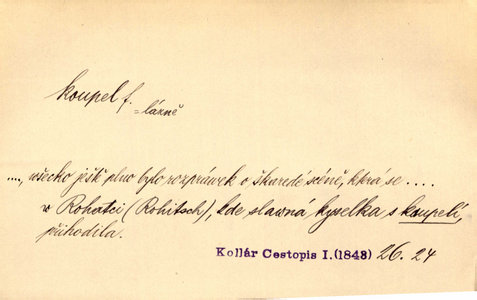 koupel f.
= lázně
...., všecko ješt plno bylo rozpráwek o škaredé scéně, která se ....
w Rohatci (Rohitsch), kde slawná kyselka s koupelí,
přihodila.
Kollár Cestopis I.(1843) 26. 24